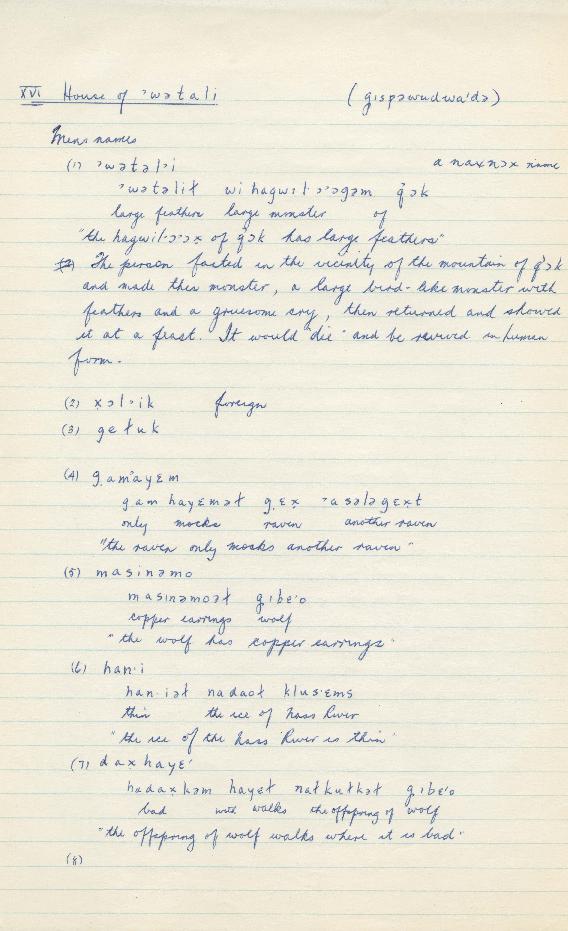 XVI House of ʼwətali (gıspəwudwaˈdə)
Mens names
(1) ʼwətəlˑi a naxnɔx name
ʼwətəlił wi hagwılˑɔʼɔgəm q̓ɔk
large feathers large monster of
"the hagwilˑɔʼɔx̣ of q̓ɔk has large feathers"
The person fasted in the vicinity of the mountain of q̓ɔk
and made this monster, a large bird-like monster with
feathers and a gruesome cry, then returned and showed
it at a feast. It would "die" and be revived in human
form.
(2) x̣əlˑik foreign
(3) gełuk
(4) g̣amʼayɛm
g̣am hayɛmət g̣ɛx̣ ʼasələgɛxt
only mocks raven another raven
"the raven only mocks another raven"
(5) masinəmo
masınəmoət g̣ıbɛˈo
copper earrings wolf
"the wolf has copper earrings"
(6) hanˑi
hanˑiət nadaoł klusˑɛms
thin the ice of Nass River
"the ice of the Nass River is thin"
(7) daxhayɛˈ
hadax̣kəm hayɛł nałkułkət g̣ıbɛˈo
bad with walks the offspring of wolf
"the offspring of wolf walks where it is bad"
(8)